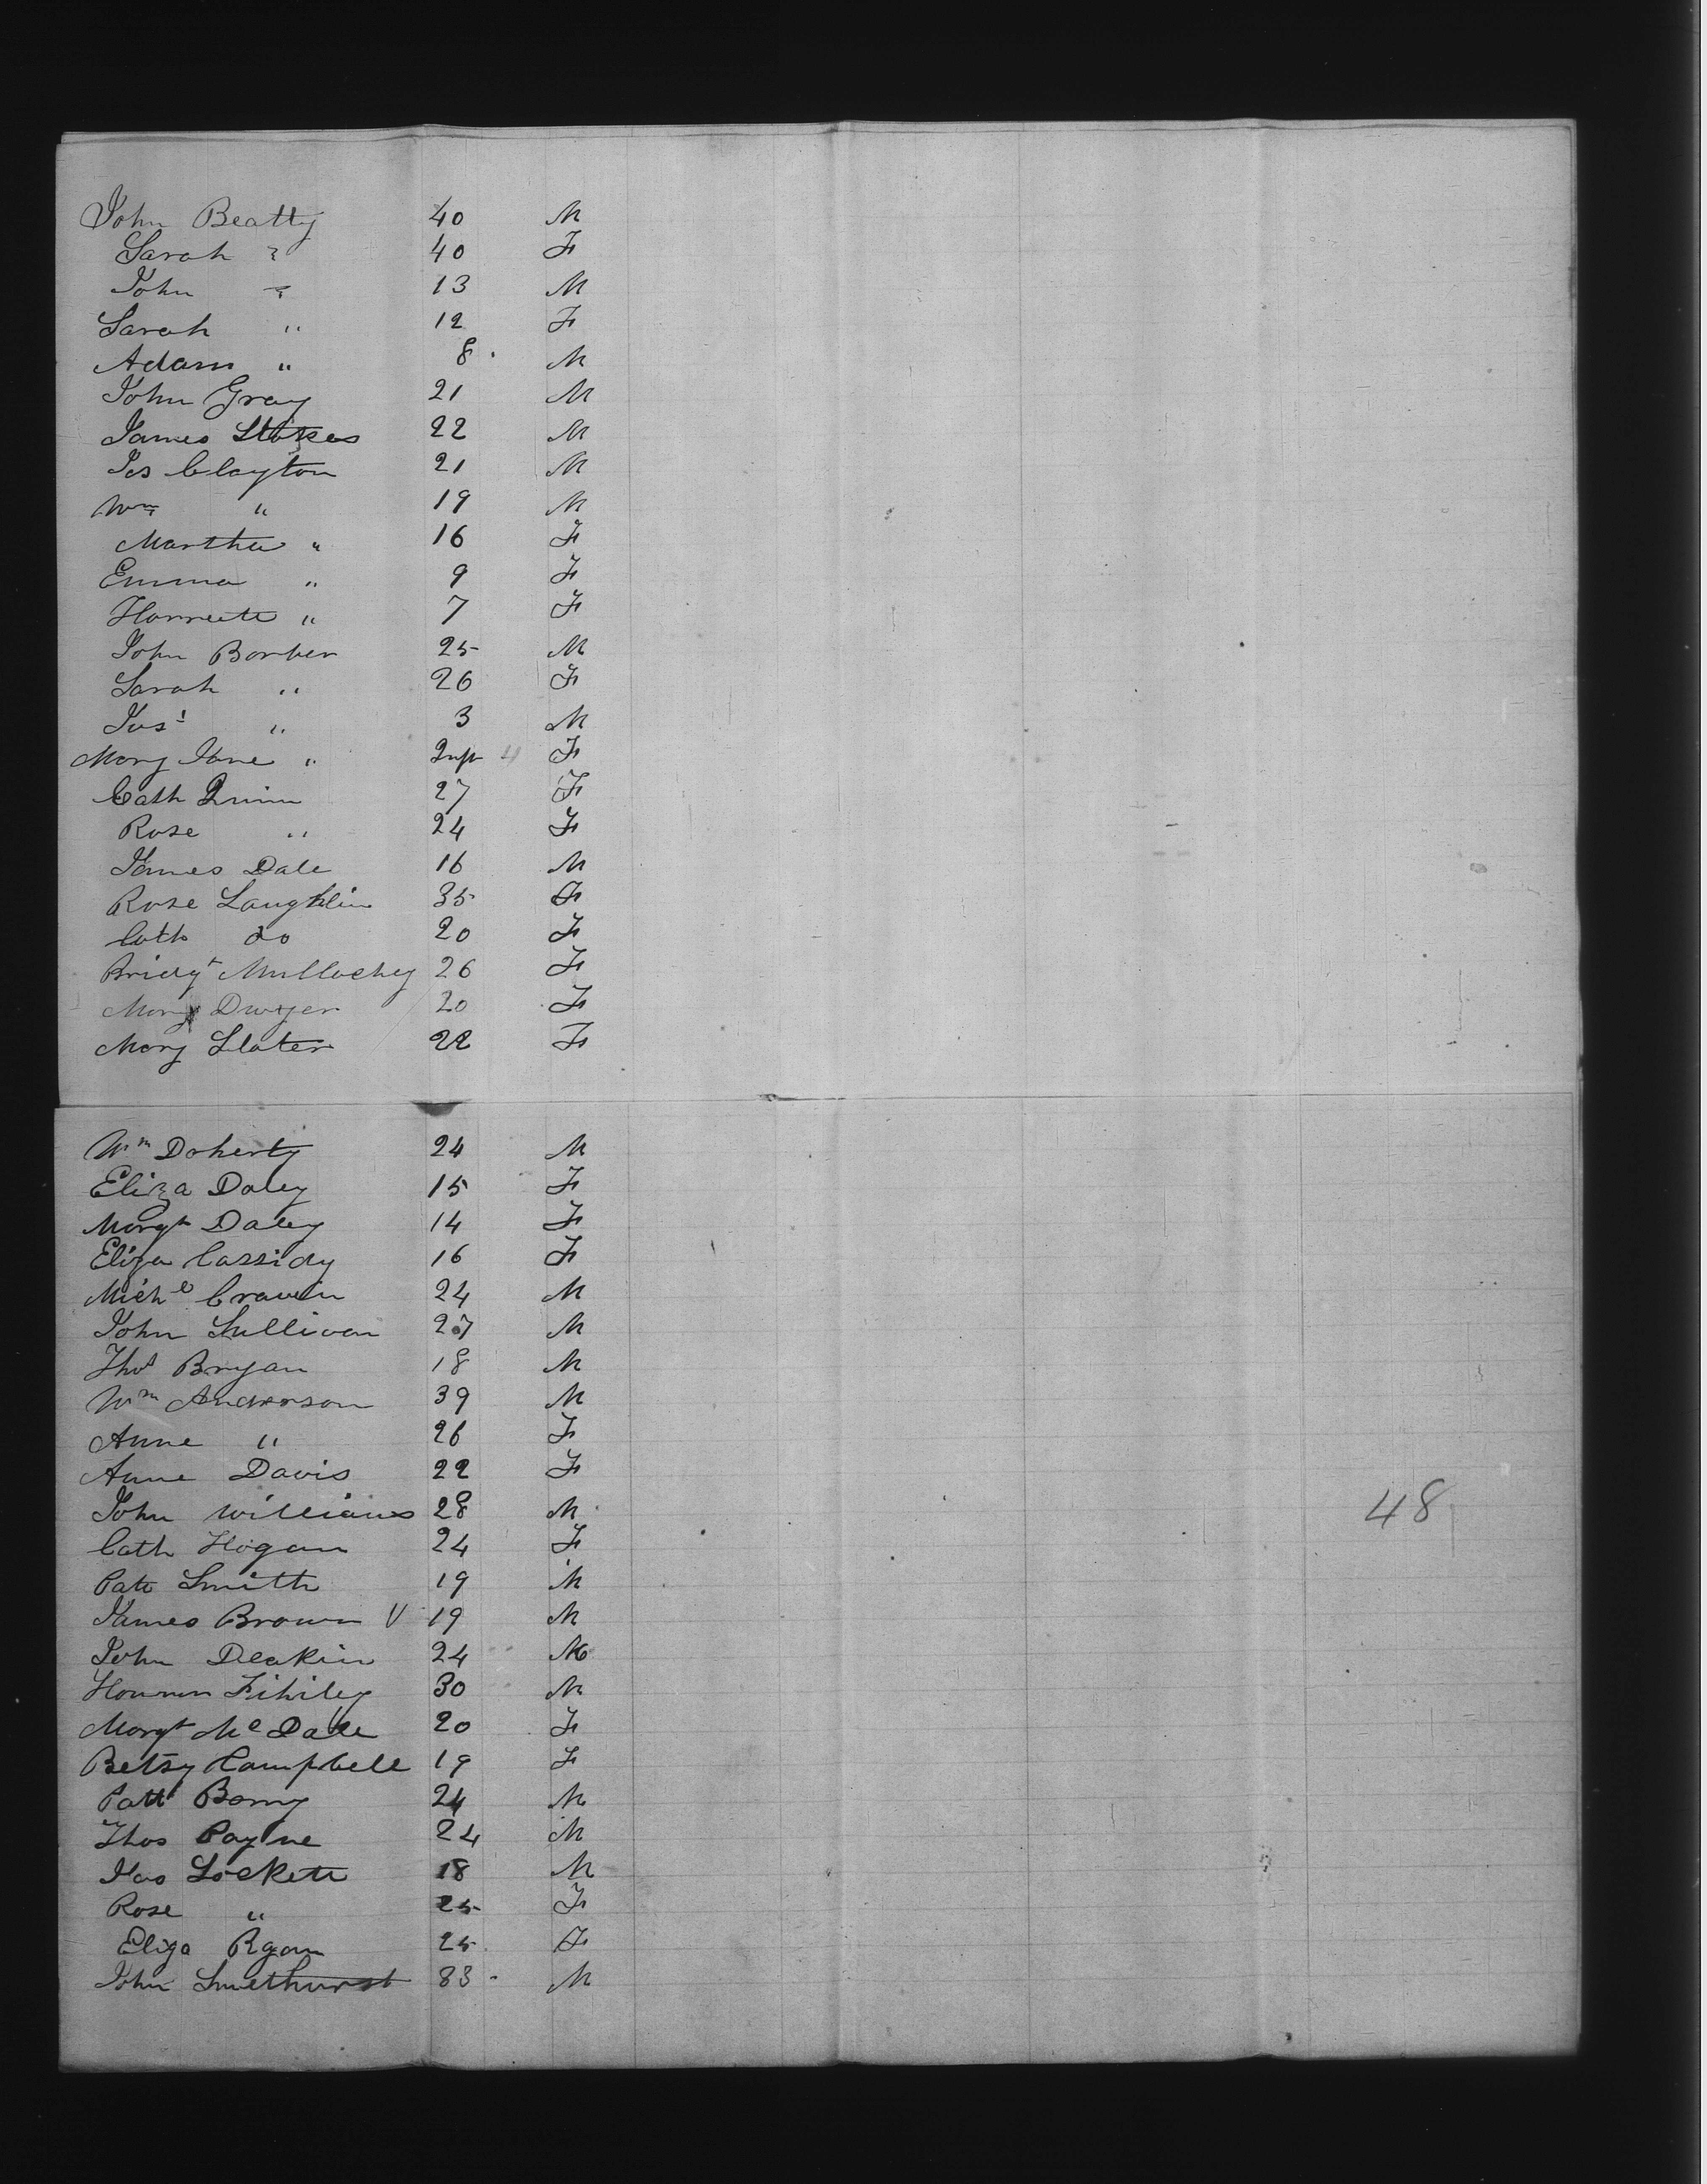 John Beatty 40 M
Sarah " 40 F
John " 13 M
Sarah " 12 F
Adam " 8 M
John Gray 21 M
James Stokes 22 M
Jos Clayton 21 M
Wm " 19 M
Martha " 16 F
Emma " 9 F
Harriete " 7 F
John Barber 25 M
Sarah " 26 F
Jos " 3 M
Mary Jane " Inft 4 F
Cath Quinn 27 F
Rose " 24 F
James Dale 16 M
Rose Laughlin 35 F
Cath do 20 F
Bridgt Mullachy 26 F
Mary Dwyer 20 F
Mary Slater 22 F
Wm Doherty 24 M
Eliza Daley 15 F
Margt Daley 14 F
Eliza Cassidy 16 F
Michl Craven 24 M
John Sullivan 27 M
Thos Bryan 18 M
Wm Anderson 39 M
Anne " 26 F
Anne Davis 22 F
John Williams 28 M
48
Cath Hogan 24 F
Patk Smith 19 M
James Brown V 19 M
John Deakin 24 M
30 M
Margt Mc Dale 20 F
Betsy Campbell 19 F
Patt 24 M
Thos Payne 24 M
Jas Lockett 18 M
Rose " 25 F
Eliza Ryan 25 F
John Smethurst 83 M